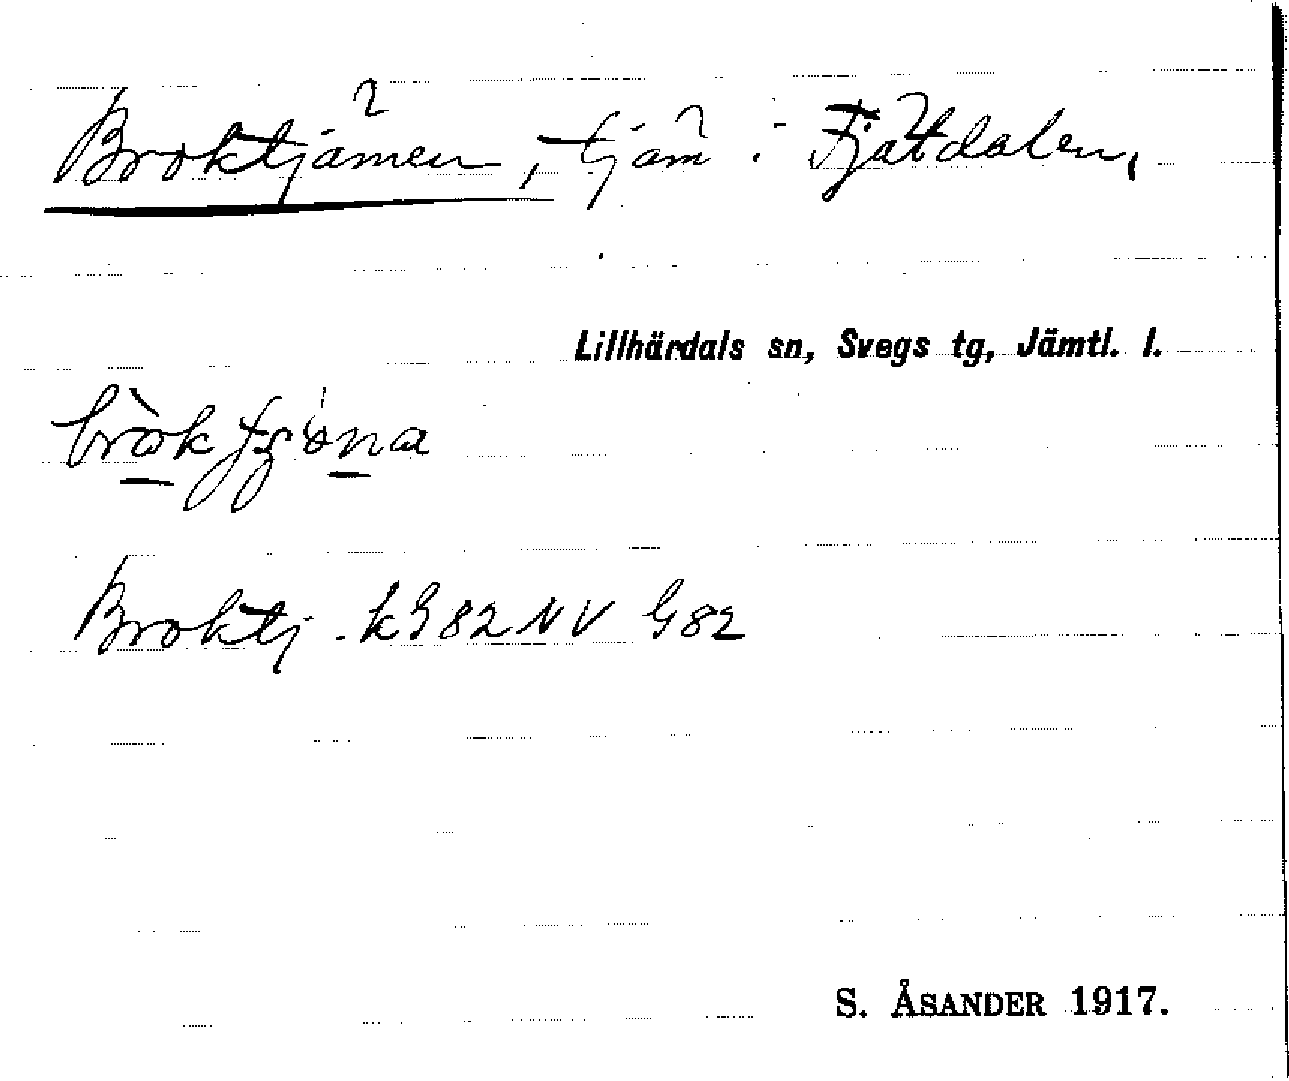 Broktjärnen, tjärn i Fjätdalen,
Lillhärdals sn, Svegs tg, Jämtl. l.
Broktj. k G 82 NV G 82
S. ÅSANDER 1917.